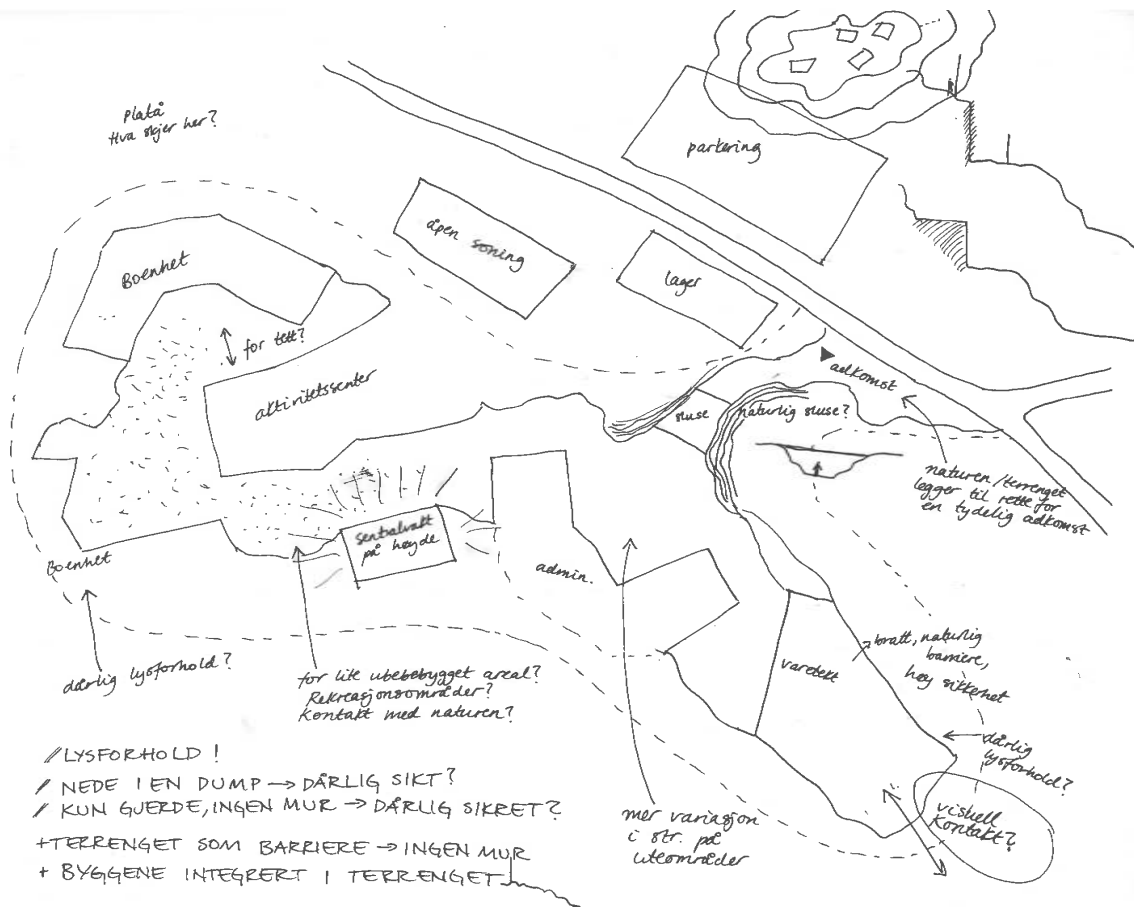 Platå
Hva skjer her?
parkering
åpen soning
lager
Boenhet
for tett?
aktivitetssenter
adkomst
sluse
naturlig sluse?
naturen/terrenget
legger til rette for
en tydelig adkomst
sentralvakt
på høyde
admin.
Boenhet
varetekt
bratt, naturlig
barriere,
høy sikkerhet
dårlig lysforhold?
for lite ubebebygget areal?
Rekreasjonsområder?
Kontakt med naturen?
dårlig
lysforhold?
visuell
kontakt?
mer variasjon
i str. på
uteområder
/ LYSFORHOLD !
/ NEDE I EN DUMP → DÅRLIG SIKT?
/ KUN GJERDE, INGEN MUR → DÅRLIG SIKRET?
+ TERRENGET SOM BARRIERE → INGEN MUR
+ BYGGENE INTEGRERT I TERRENGET